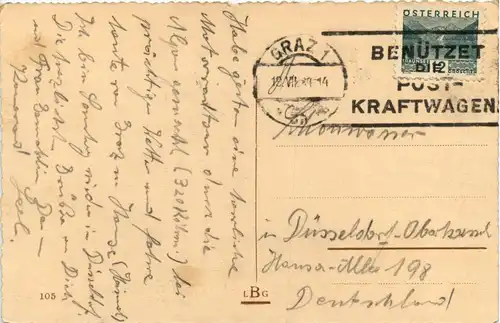 Habe gestern eine herrliche
Motorradtour durch die
Alpen gemacht (320 Kilom) bei
prächtigem Wetter und fahre
von Graz zu Hause
Ich bin Sonntag wieder in Düsseldorf.
Die herzlichsten Grüße an Dich
und Frau Gemahlin Dein
105
LBG
GRAZ 1
12.VII.
14
ÖSTERREICH
BENÜTZET
DIE
POST-
KRAFTWAGEN
in Düsseldorf-Oberkassel
Hansa-Allee 198
Deutschland